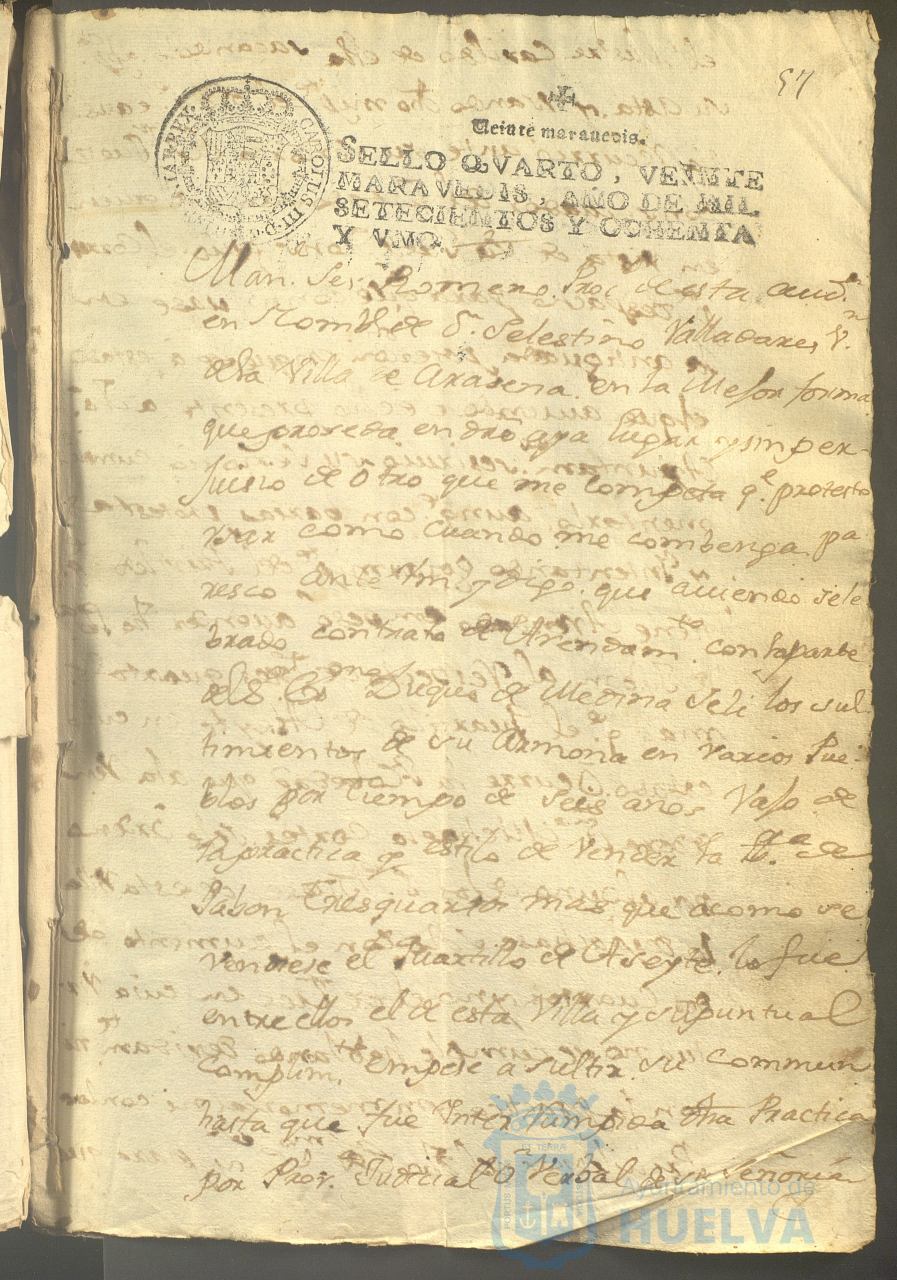 57
Veinte maravedis.
SELLO QVARTO, VEINTE
MARAVEDIS, AÑO DE MIL
SETECIENTOS Y OCHENTA
Y VNO.
CAROLUS III D.
Man. Romero Proc. de esta aud.ª
en Nombre de D.n Selestino Valladares V.º
de la Villa de Arasena en la Mejor forma
que proseda en dro aya lugar y sin per-
juisio de Otro que me competa q.e protesto
vsar como cuando me combenga pa
resco Ante Vm. y digo que auiendo sele
brado contrato de Arrendam.to con la parte
del Duque de Medina Seli los sul
timientos de su Armona en Varios Pue-
blos por tiempo de Seis años Vajo de
la practica y estilo de Vender la de
Jabon Tres quartos mas que acomo se
Vendiese el Quartillo de Aseyte lo fue
entre ellos el de esta Villa y su puntual
Cumplim.to empese a sultir su commun
hasta que fue Interrumpida dha Practica
por Prov.ª Judicial O Verbal de su Señoria
Ayuntamiento de
HUELVA